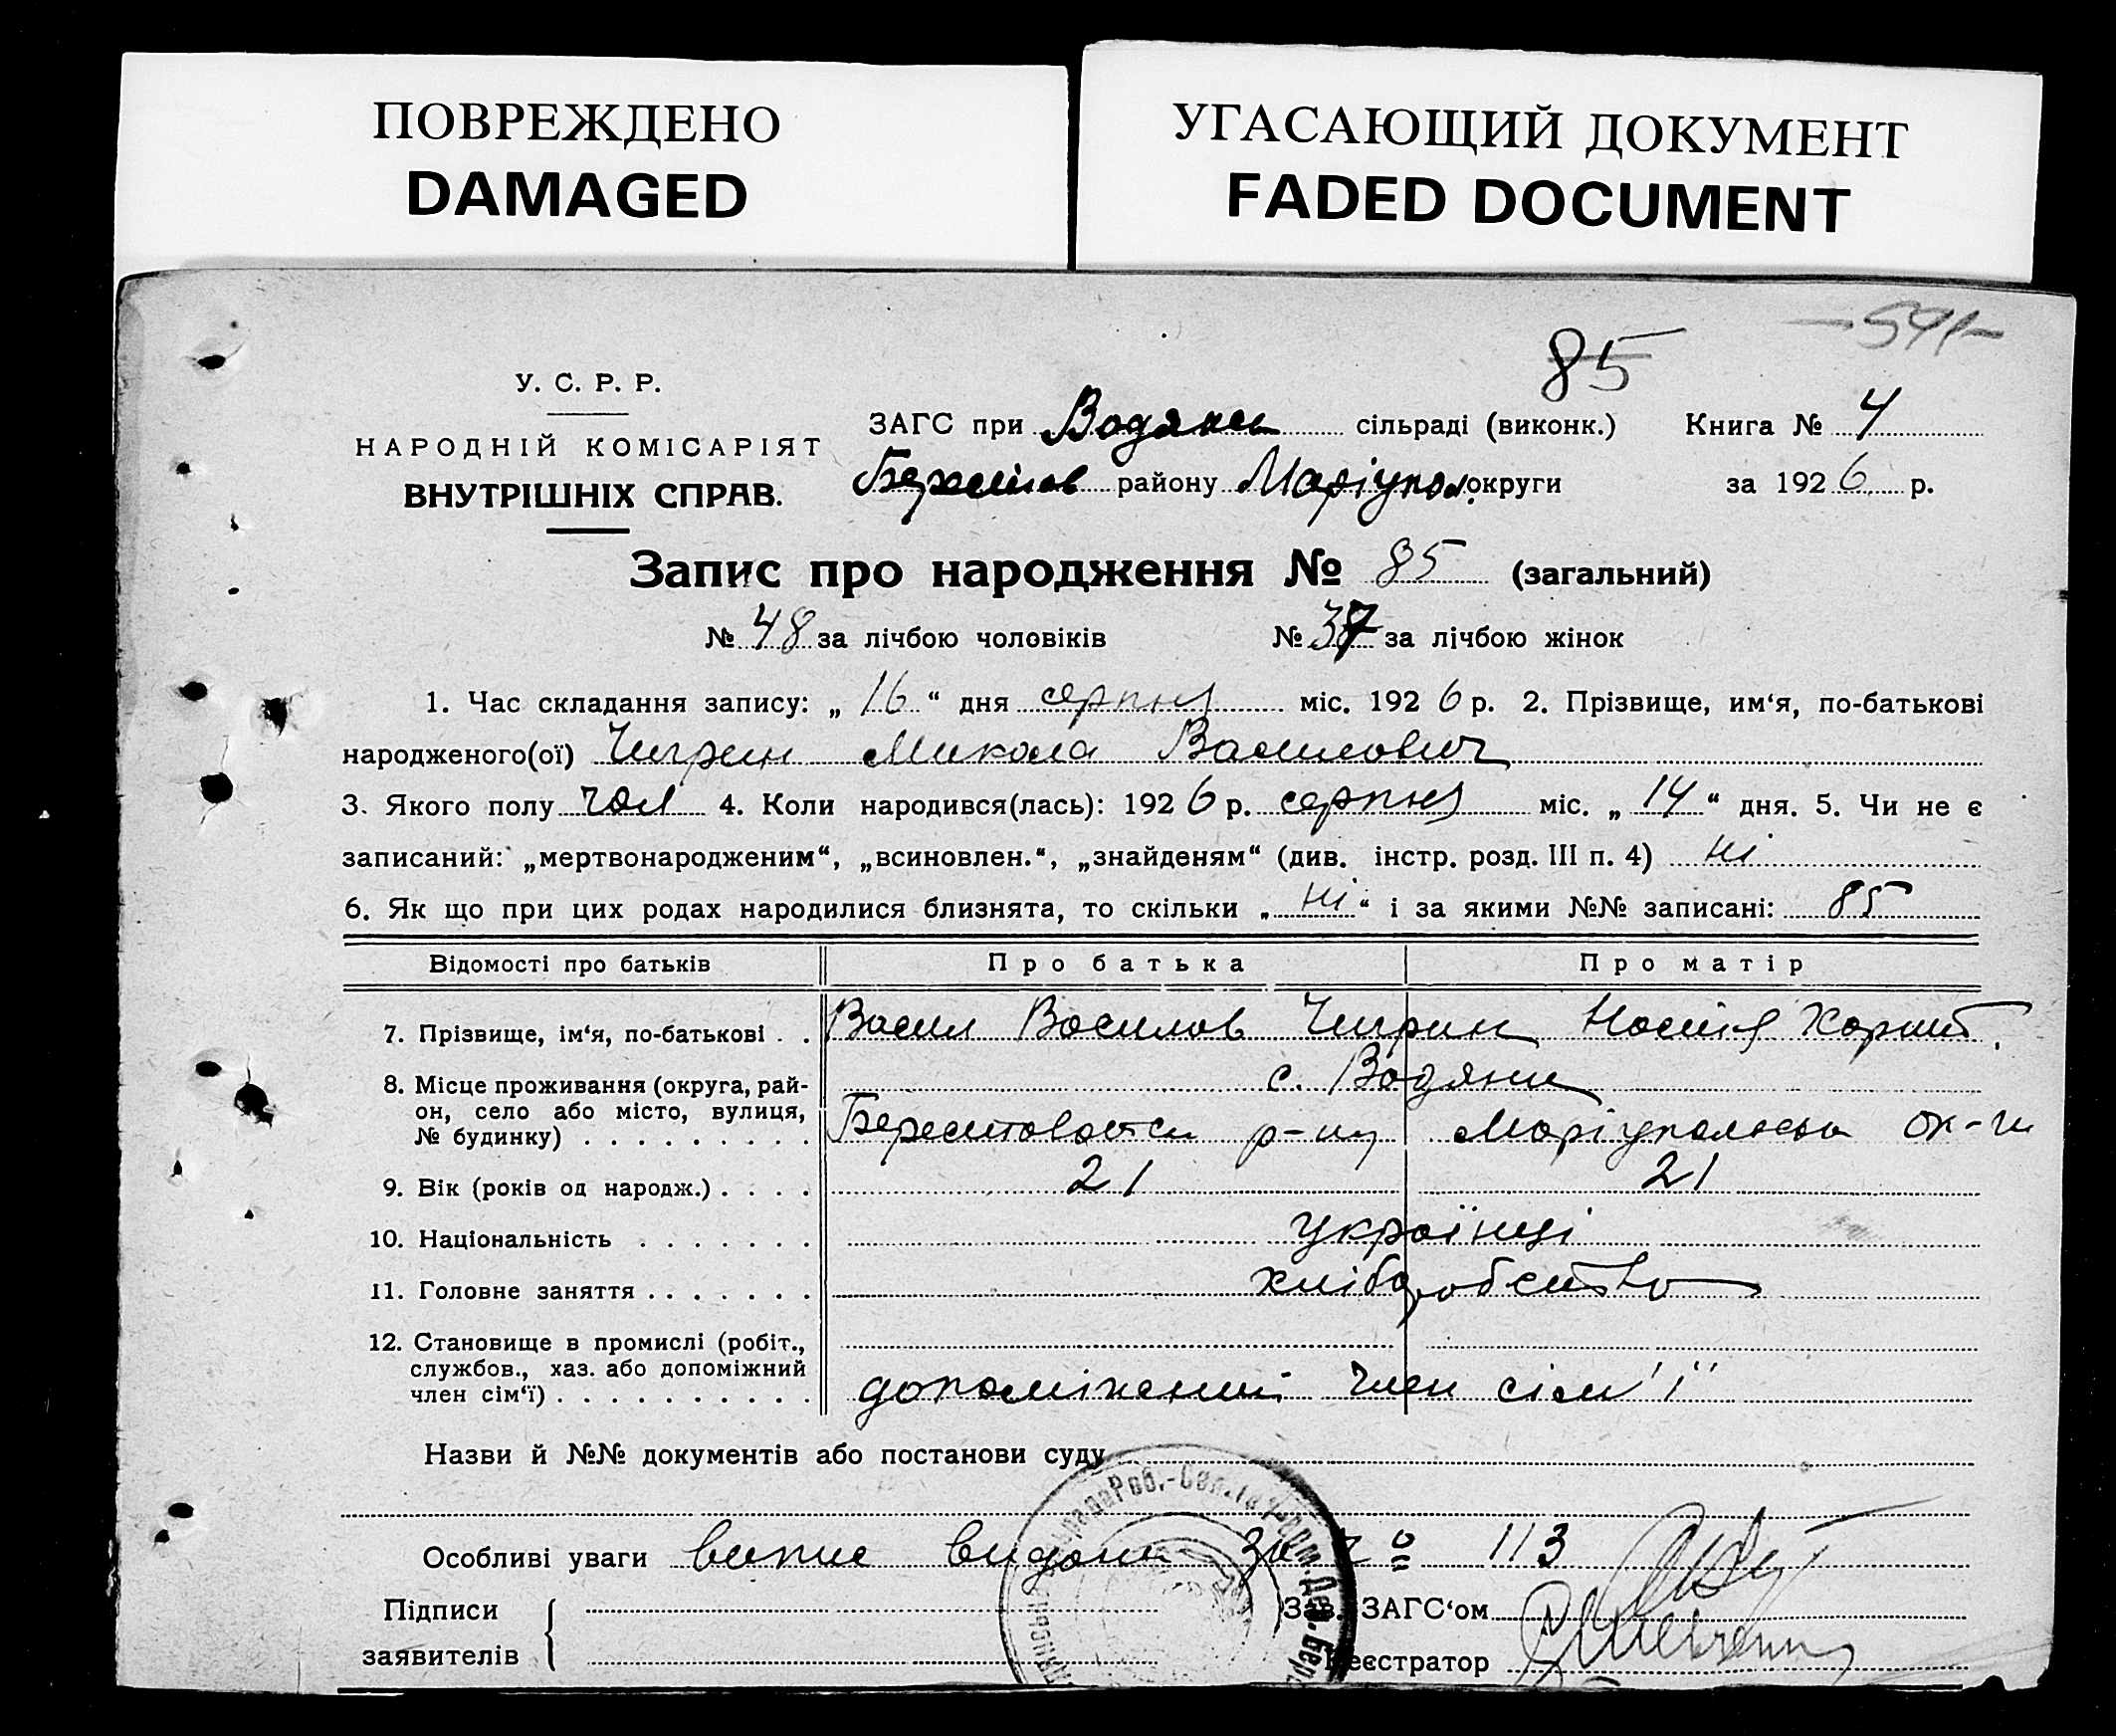 ПОВРЕЖДЕНО
DAMAGED
УГАСАЮЩИЙ ДОКУМЕНТ
FADED DOCUMENT
-541-
85
У. С. Р. Р.
НАРОДНІЙ КОМІСАРІЯТ
ВНУТРІШНІХ СПРАВ.
ЗАГС при Водянсь сільраді (виконк.) Книга № 4
району Маріупол. округи за 1926 р.
Запис про народження № 85 (загальний)
№ 48 за лічбою чоловіків № 37 за лічбою жінок
1. Час складання запису: „ 16 “ дня серпня міс. 1926 р. 2. Прізвище, им‘я, по-батькові
народженого(ої) Чигрин Микола Василович
3. Якого полу чол 4. Коли народився(лась): 1926 р. серпня міс. „ 14 “ дня. 5. Чи не є
записаний: „мертвонародженим“, „всиновлен.“, „знайденям“ (див. інстр. розд. III п. 4) ні
6. Як що при цих родах народилися близнята, то скільки „ ні “ і за якими №№ записані: 85
Відомості про батьків Про батька Про матір
7. Прізвище, ім‘я, по-батькові . . Васил Василов Чигрин
8. Місце проживання (округа, рай-
он, село або місто, вулиця,
№ будинку) . . . . . . . . . .
с. Водяни
р-ну Маріупольсь ок-ги
9. Вік (років од народж.) . . . . 21 21
10. Національність . . . . . . . українці
11. Головне заняття . . . . . . . хліборобство
12. Становище в промислі (робіт.,
службов., хаз. або допоміжний
член сім‘ї) . . . . . . . . . . допоміжний член сім'ї
Назви й №№ документів або постанови суду
Особливі уваги випис видан за № 113
Підписи
заявителів
Зав. ЗАГС‘ом
Реєстратор